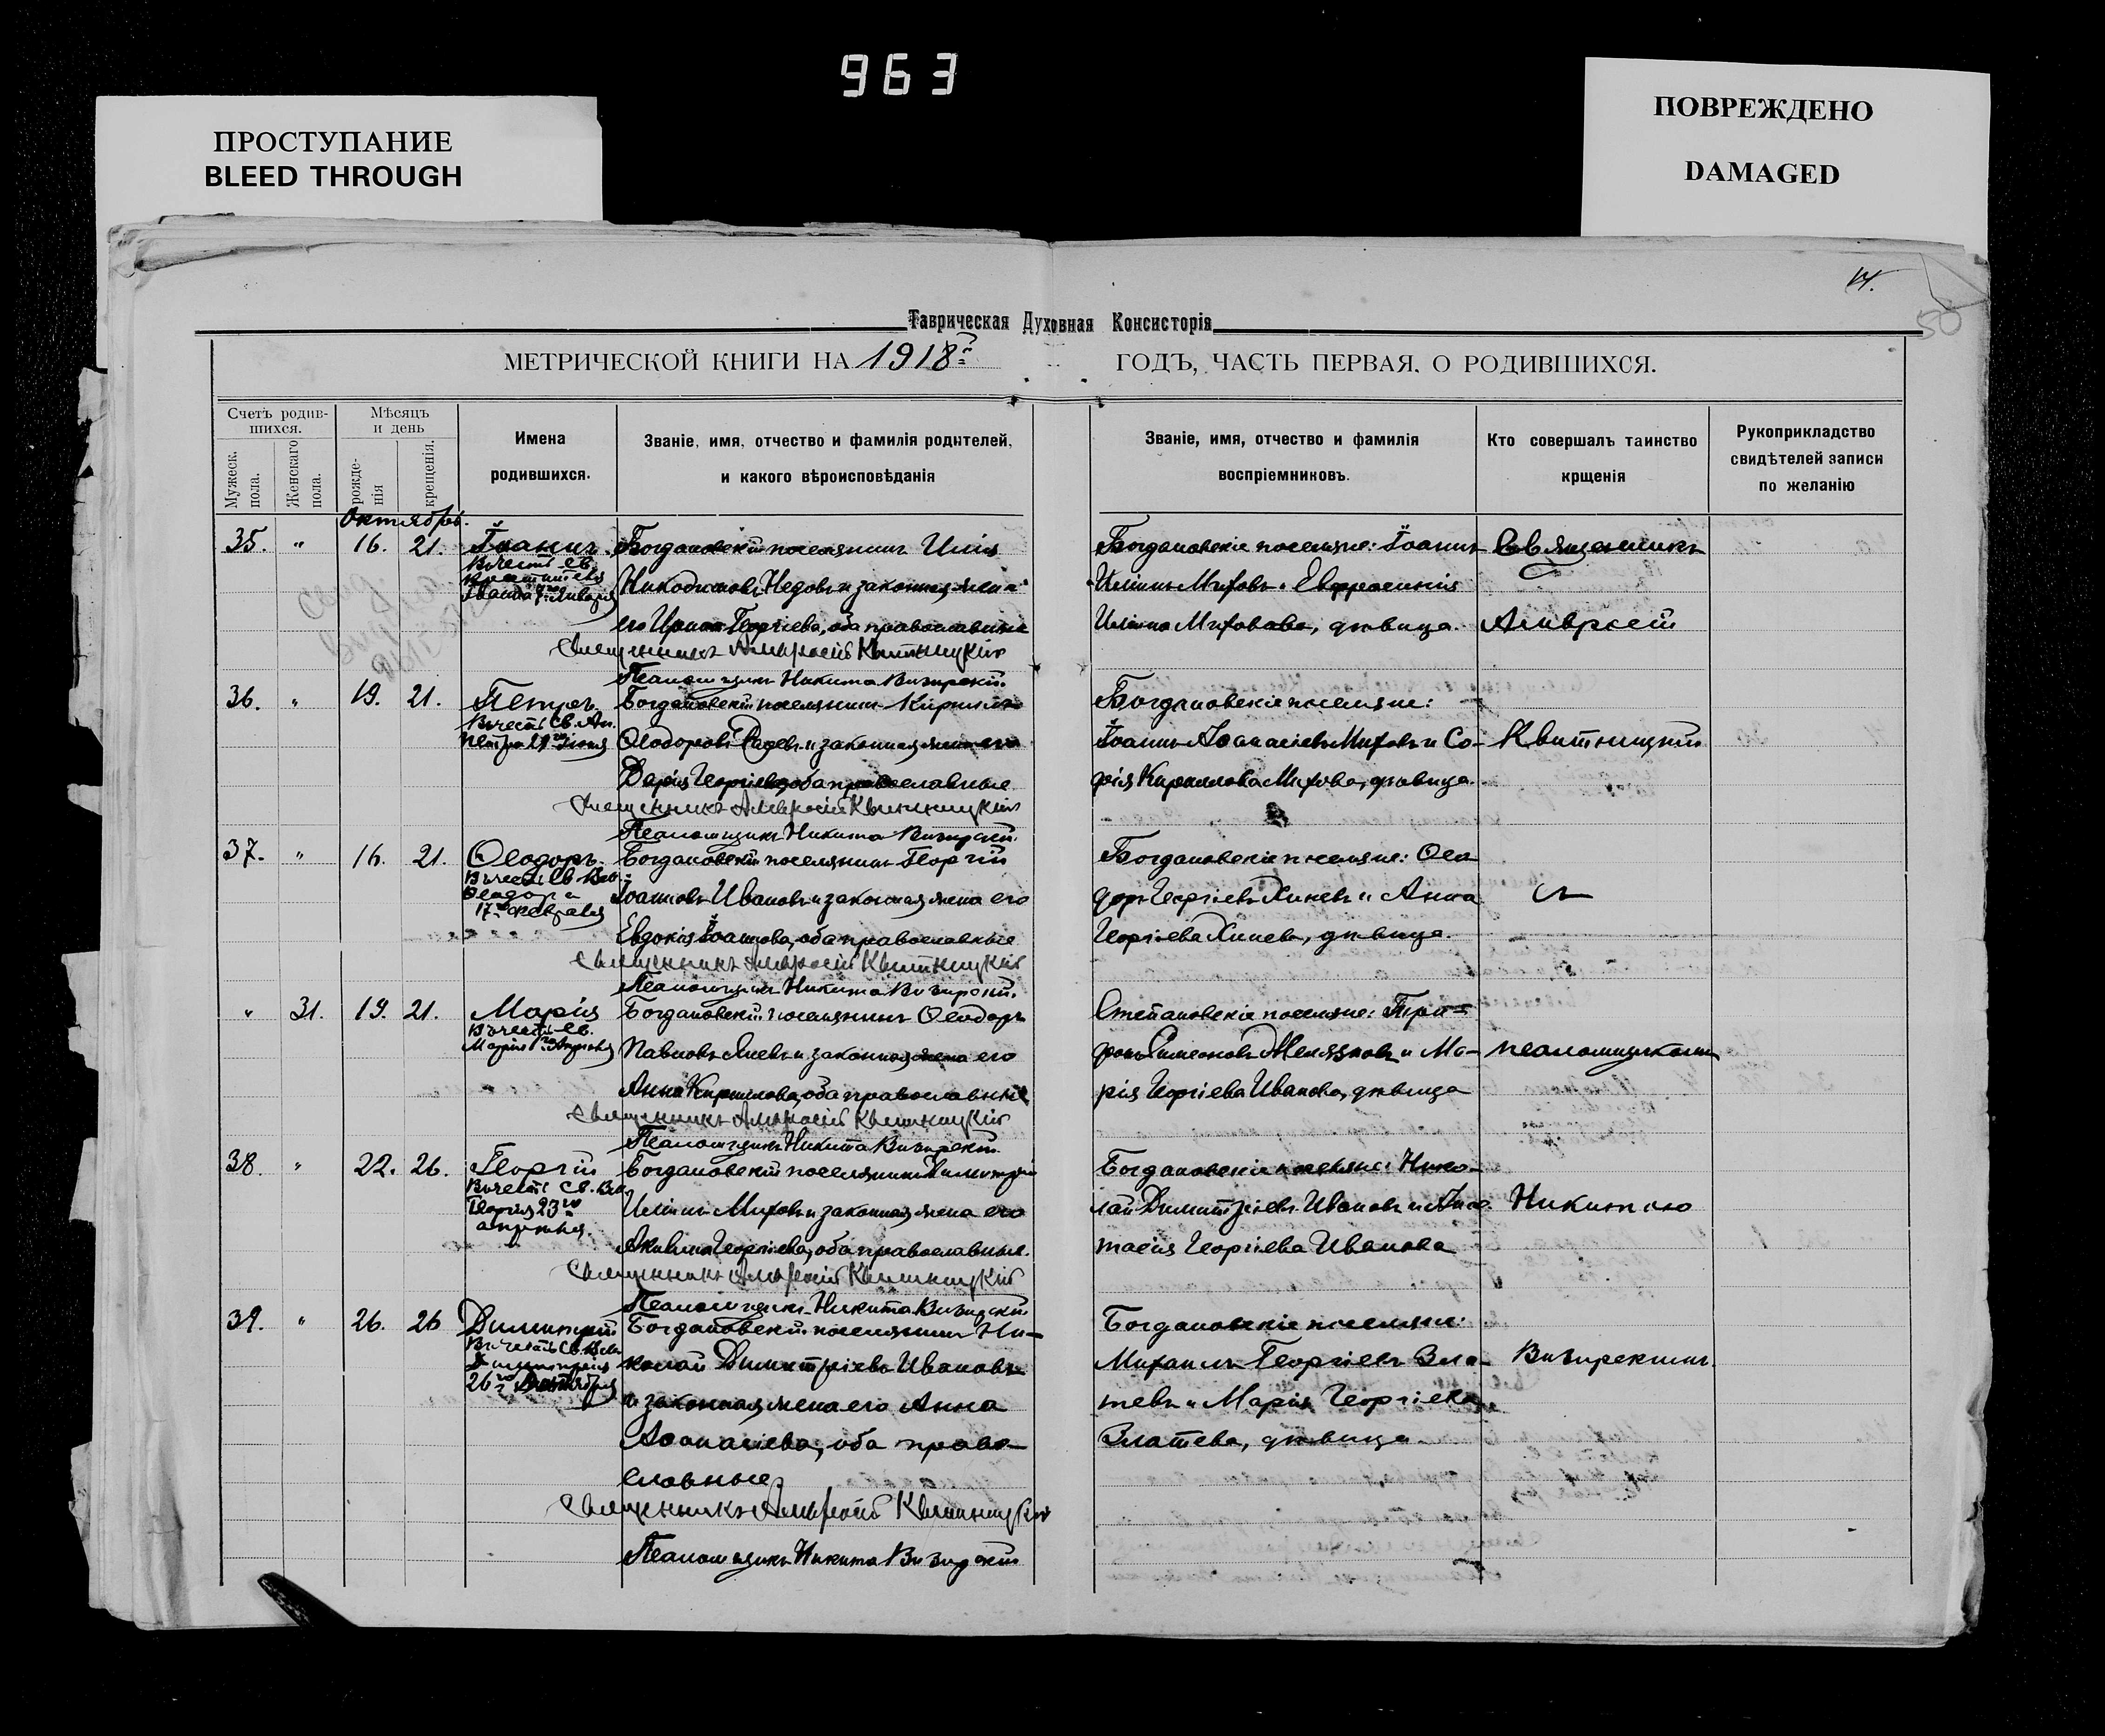 963
ПРОСТУПАНИЕ
BLEED THROUGH
ПОВРЕЖДЕНО
DAMAGED
14.
50
Таврическая Духовная Консисторія
МЕТРИЧЕСКОЙ КНИГИ НА 1918 г. ГОДЪ, ЧАСТЬ ПЕРВАЯ, О РОДИВШИХСЯ.
Счетъ родив-
шихся.
Мужеск.
пола.
Женскаго
пола.
Мѣсяцъ
и день
рожде-
нія
крещенія.
Имена
родившихся.
Званіе, имя, отчество и фамилія родителей,
и какого вѣроисповѣданія
Званіе, имя, отчество и фамилія
воспріемниковъ.
Кто совершалъ таинство
крщенія
Рукоприкладство
свидѣтелей записи
по желанію
Октябрь.
35. " 16. 21. Іоаннъ
Въ честь св.
Крестителя
Іоанна 7го Января
Богдановскій поселянинъ Илія
Никодимовъ Недовъ и законная жена
его Ирина Георгіева, оба православные
Священникъ Амвросій Квитницкій
Псаломщикъ Никита Визирскій.
Богдановскіе поселяне: Іоаннъ
Иліинъ Миховъ и Евфросинія
Иліина Михова, дѣвица.
Священникъ
Амвросій
36. " 19. 21. Петръ
Въ честь Св. Ап.
Петра 29го Іюня
Богдановскій поселянинъ Кириллъ
Ѳеодоровъ Радевъ и законная жена его
Дарія Георгіева, оба православные.
Священникъ Амвросій Квитницкій
Псаломщикъ Никита Визирскій.
Богдановскіе поселяне:
Іоаннъ Аѳанасіевъ Миховъ и Со-
фія Кириллова Михова, дѣвица.
Квитницкій
37. " 16. 21. Ѳеодоръ.
Въ честь Св. Вел.
Ѳеодора
17го февраля
Богдановскій поселянинъ Георгій
Іоанновъ Ивановъ и законная жена его
Евдокія Іоаннова, оба православные
Священникъ Амвросій Квитницкій
Псаломщикъ Никита Визирскій.
Богдановскіе поселяне: Ѳео-
доръ Георгіевъ Хиневъ и Анна
Георгіева Хинева, дѣвица.
съ
" 31. 19. 21. Марія
Въ честь св.
Маріи 1го Апрѣля
Богдановскій поселянинъ Ѳеодоръ
Павловъ Яневъ и законная жена его
Анна Кириллова, оба православные
Священникъ Амвросій Квитницкій
Псаломщикъ Никита Визирскій
Степановскіе поселяне:
Симеоновъ и Ма-
рія Георгіева Иванова, дѣвица
псаломщикомъ
38. " 22. 26. Георгій
Въ честь Св. Вел.
Георгія 23го
апрѣля.
Богдановскій поселянинъ Димитрій
Иліинъ Миховъ и законная жена его
Акилина Георгіева, оба православные.
Священникъ Амвросій Квитницкій
Псаломщикъ Никита Визирскій
Богдановскіе поселяне: Нико-
лай Димитріевъ Ивановъ и Анас-
тасія Георгіева Иванова
Никитою
39. " 26. 26 Димитрій
Въ честь Св. Вел.
Димитрія
26го Октября
Богдановскій поселянинъ Ни-
колай Димитріевъ Ивановъ
и законная жена его Анна
Аѳанасіева, оба право-
славные
Священникъ Амвросій Квитницкій
Псаломщикъ Никита Визирскій
Богдановскіе поселяне:
Михаилъ Георгіевъ Зла-
тевъ и Марія Георгіева
Златева, дѣвица.
Визирскимъ.